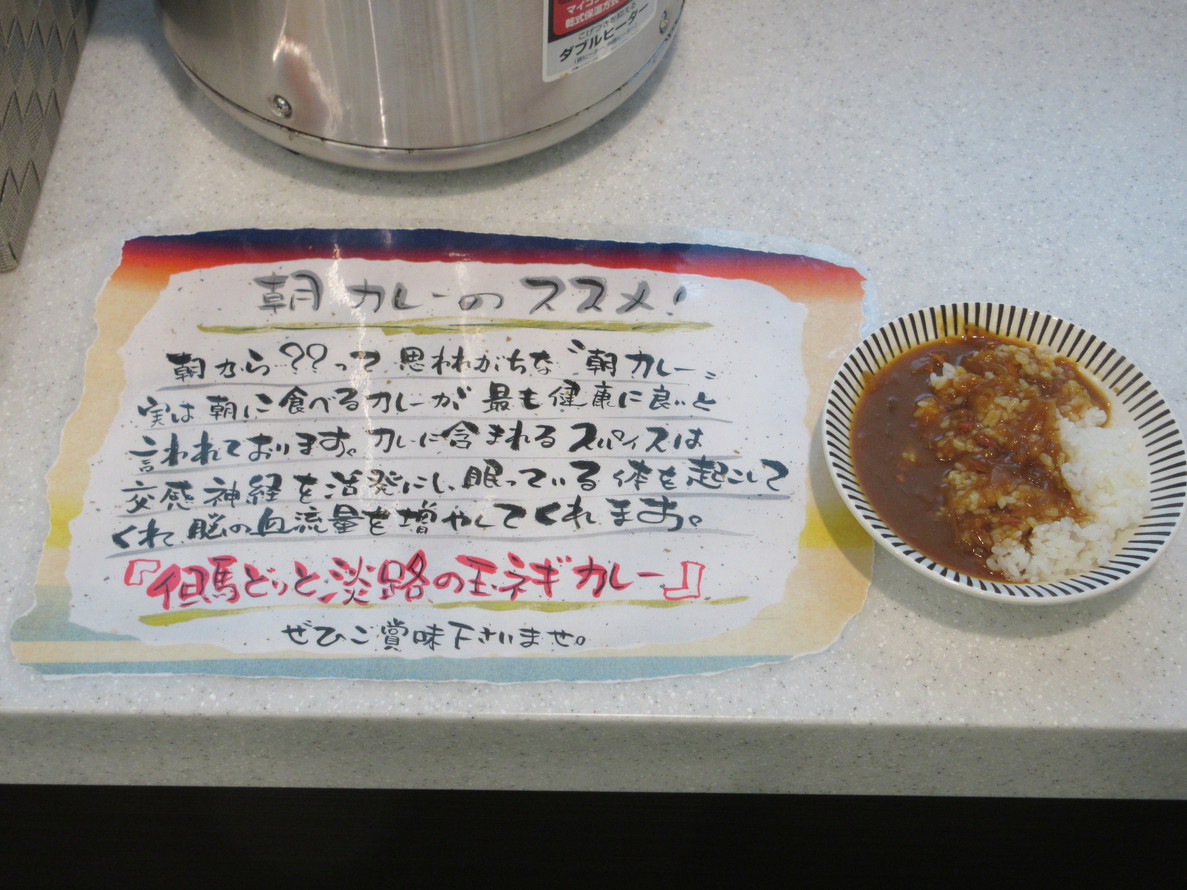 マイコン
乾式保温方式
こげつきを抑える
ダブルヒーター
朝カレーのススメ!
朝から??って思われがちな〝朝カレー〟
実は朝に食べるカレーが最も健康に良いと
言われております。カレーに含まれるスパイスは
交感神経を活発にし、眠っている体を起こして
くれ、脳の血流量を増やしてくれます。
『但馬どりと淡路の玉ネギカレー』
ぜひご賞味下さいませ。